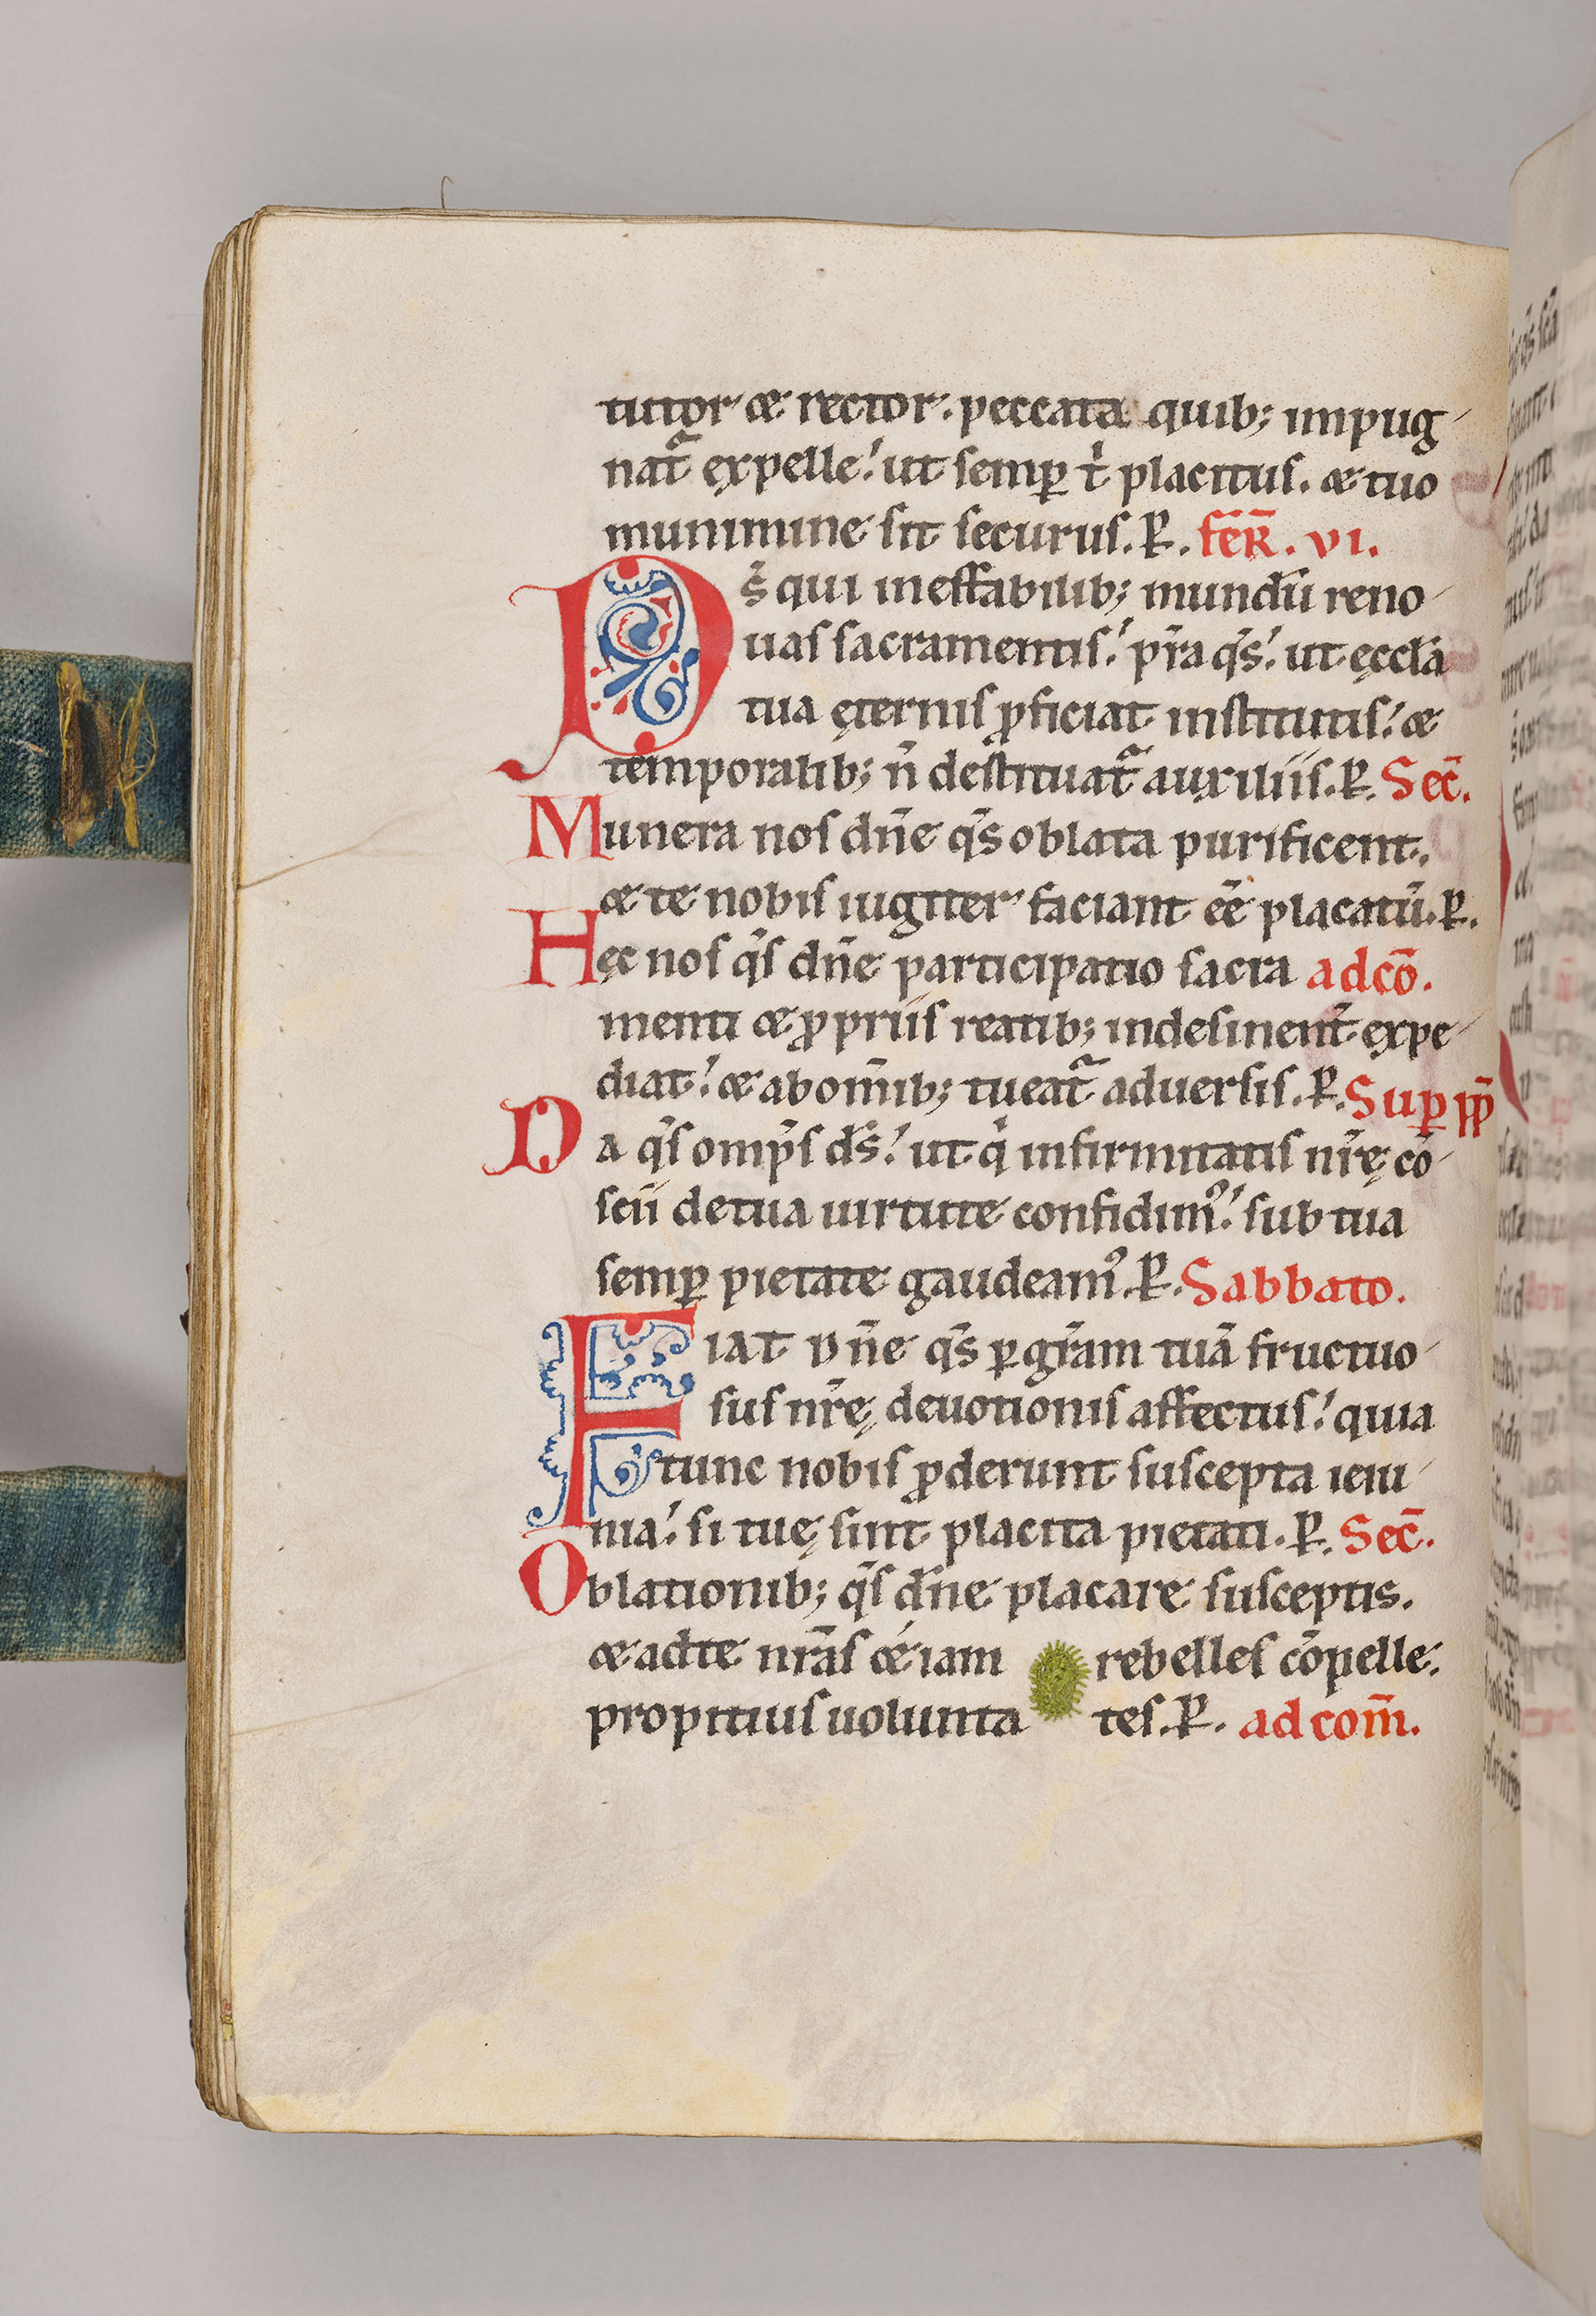 tutor & rector. peccata quib; impug
nat᷑ expelle! ut semꝑ t̍ placitus. & tuo
munimine sit securus. ꝑ. fēR. vi.
Ds̄ qui ineffabilib; mundū reno
uas sacramentis! p̄ra q̄s! ut ęcclā
tua ęternis ꝓficiat institutis! &
temporalib; n̄ destituat᷑ auxiliis. ꝑ. Sec̄.
Munera nos dn̄e q̄s oblata purificent.
& te nobis iugiter faciant ēē placatū. ꝑ.
Hęc nos q̄s dn̄e participatio sacra adcō.
menti & ꝓpriis reatib; indesinent̄ expe
diat! & abom̄ib; tueat᷑ aduersis. ꝑ. Suꝑ pp̄
Da q̄s omp̄s ds̄! ut q̍ infirmitatis nr̄ę cō
scii detua uirtute confidimꝰ! sub tua
semꝑ pietate gaudeamꝰ. ꝑ. Sabbato.
Fiat dn̄e q̄s ꝑ gr̄am tuā fructuo
sus nr̄ę deuotionis affectus! quia
tunc nobis ꝓderunt suscepta ieiu
nia! si tuę sint placita pietati. ꝑ. Sec̄.
Oblationib; q̄s dn̄e placare susceptis.
& adte nr̄as &iam rebelles cōpelle
propitius uolunta tes. ꝑ. ad com̄.